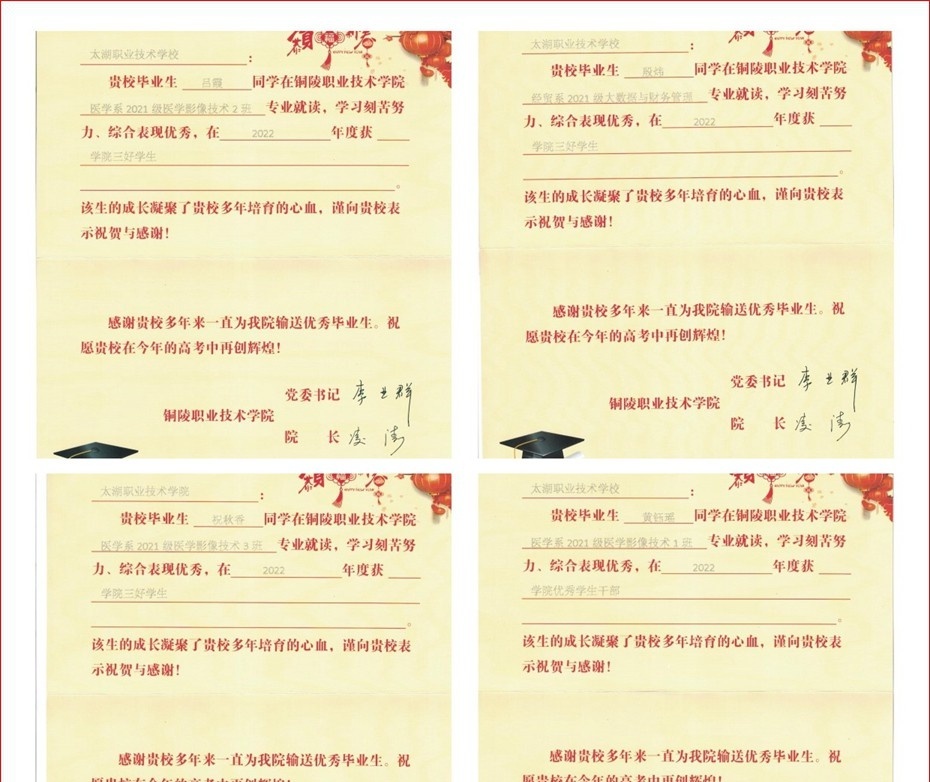 恭贺新春
HAPPY NEW YEAR
太湖职业技术学校:
贵校毕业生 吕霞 同学在铜陵职业技术学院
医学系 2021 级医学影像技术 2 班 专业就读，学习刻苦努
力、综合表现优秀，在 2022 年度获
学院三好学生
。
该生的成长凝聚了贵校多年培育的心血，谨向贵校表
示祝贺与感谢！
感谢贵校多年来一直为我院输送优秀毕业生。祝
愿贵校在今年的高考中再创辉煌！
党委书记
铜陵职业技术学院
院 长 凌涛
太湖职业技术学校:
贵校毕业生 段炜 同学在铜陵职业技术学院
经贸系 2021 级大数据与财务管理 专业就读，学习刻苦努
力、综合表现优秀，在 2022 年度获
学院三好学生
。
该生的成长凝聚了贵校多年培育的心血，谨向贵校表
示祝贺与感谢！
感谢贵校多年来一直为我院输送优秀毕业生。祝
愿贵校在今年的高考中再创辉煌！
党委书记
铜陵职业技术学院
院 长 凌涛
HAPPY NEW YEAR
太湖职业技术学院:
贵校毕业生 祝秋香 同学在铜陵职业技术学院
医学系 2021 级医学影像技术 3 班 专业就读，学习刻苦努
力、综合表现优秀，在 2022 年度获
学院三好学生
。
该生的成长凝聚了贵校多年培育的心血，谨向贵校表
示祝贺与感谢！
感谢贵校多年来一直为我院输送优秀毕业生。祝
愿贵校在今年的高考中再创辉煌！
HAPPY NEW YEAR
太湖职业技术学校:
贵校毕业生 黄钰 同学在铜陵职业技术学院
医学系 2021 级医学影像技术 1 班 专业就读，学习刻苦努
力、综合表现优秀，在 2022 年度获
学院优秀学生干部
。
该生的成长凝聚了贵校多年培育的心血，谨向贵校表
示祝贺与感谢！
感谢贵校多年来一直为我院输送优秀毕业生。祝
愿贵校在今年的高考中再创辉煌！